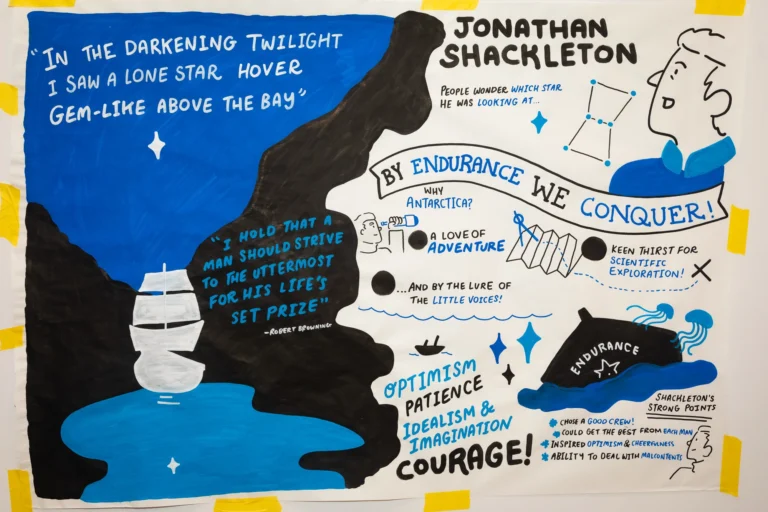 "IN THE DARKENING TWILIGHT
I SAW A LONE STAR HOVER
GEM-LIKE ABOVE THE BAY"
"I HOLD THAT A
MAN SHOULD STRIVE
TO THE UTTERMOST
FOR HIS LIFE'S
SET PRIZE"
-ROBERT BROWNING
JONATHAN
SHACKLETON
PEOPLE WONDER WHICH STAR
HE WAS LOOKING AT...
BY ENDURANCE WE CONQUER!
WHY
ANTARCTICA?
A LOVE OF
ADVENTURE
KEEN THIRST FOR
SCIENTIFIC
EXPLORATION!
...AND BY THE LURE OF
THE LITTLE VOICES!
OPTIMISM
PATIENCE
IDEALISM &
IMAGINATION
COURAGE!
ENDURANCE
SHACHLETON'S
STRONG POINTS
CHOSE A GOOD CREW!
COULD GET THE BEST FROM EACH MAN
INSPIRED OPTIMISM & CHEERFULNESS
ABILITY TO DEAL WITH MALCONTENTS